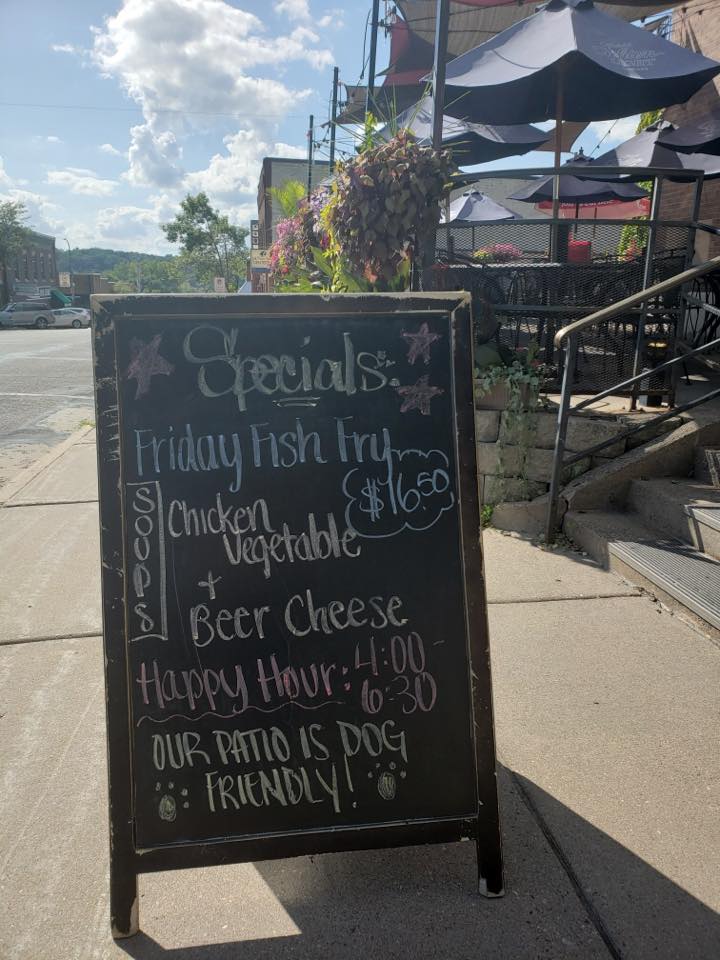 Specials:
Friday Fish Fry
$16.50
SOUPS
Chicken
Vegetable
+
Beer Cheese
Happy Hour: 4:00-
6:30
OUR PATIO IS DOG
FRIENDLY!